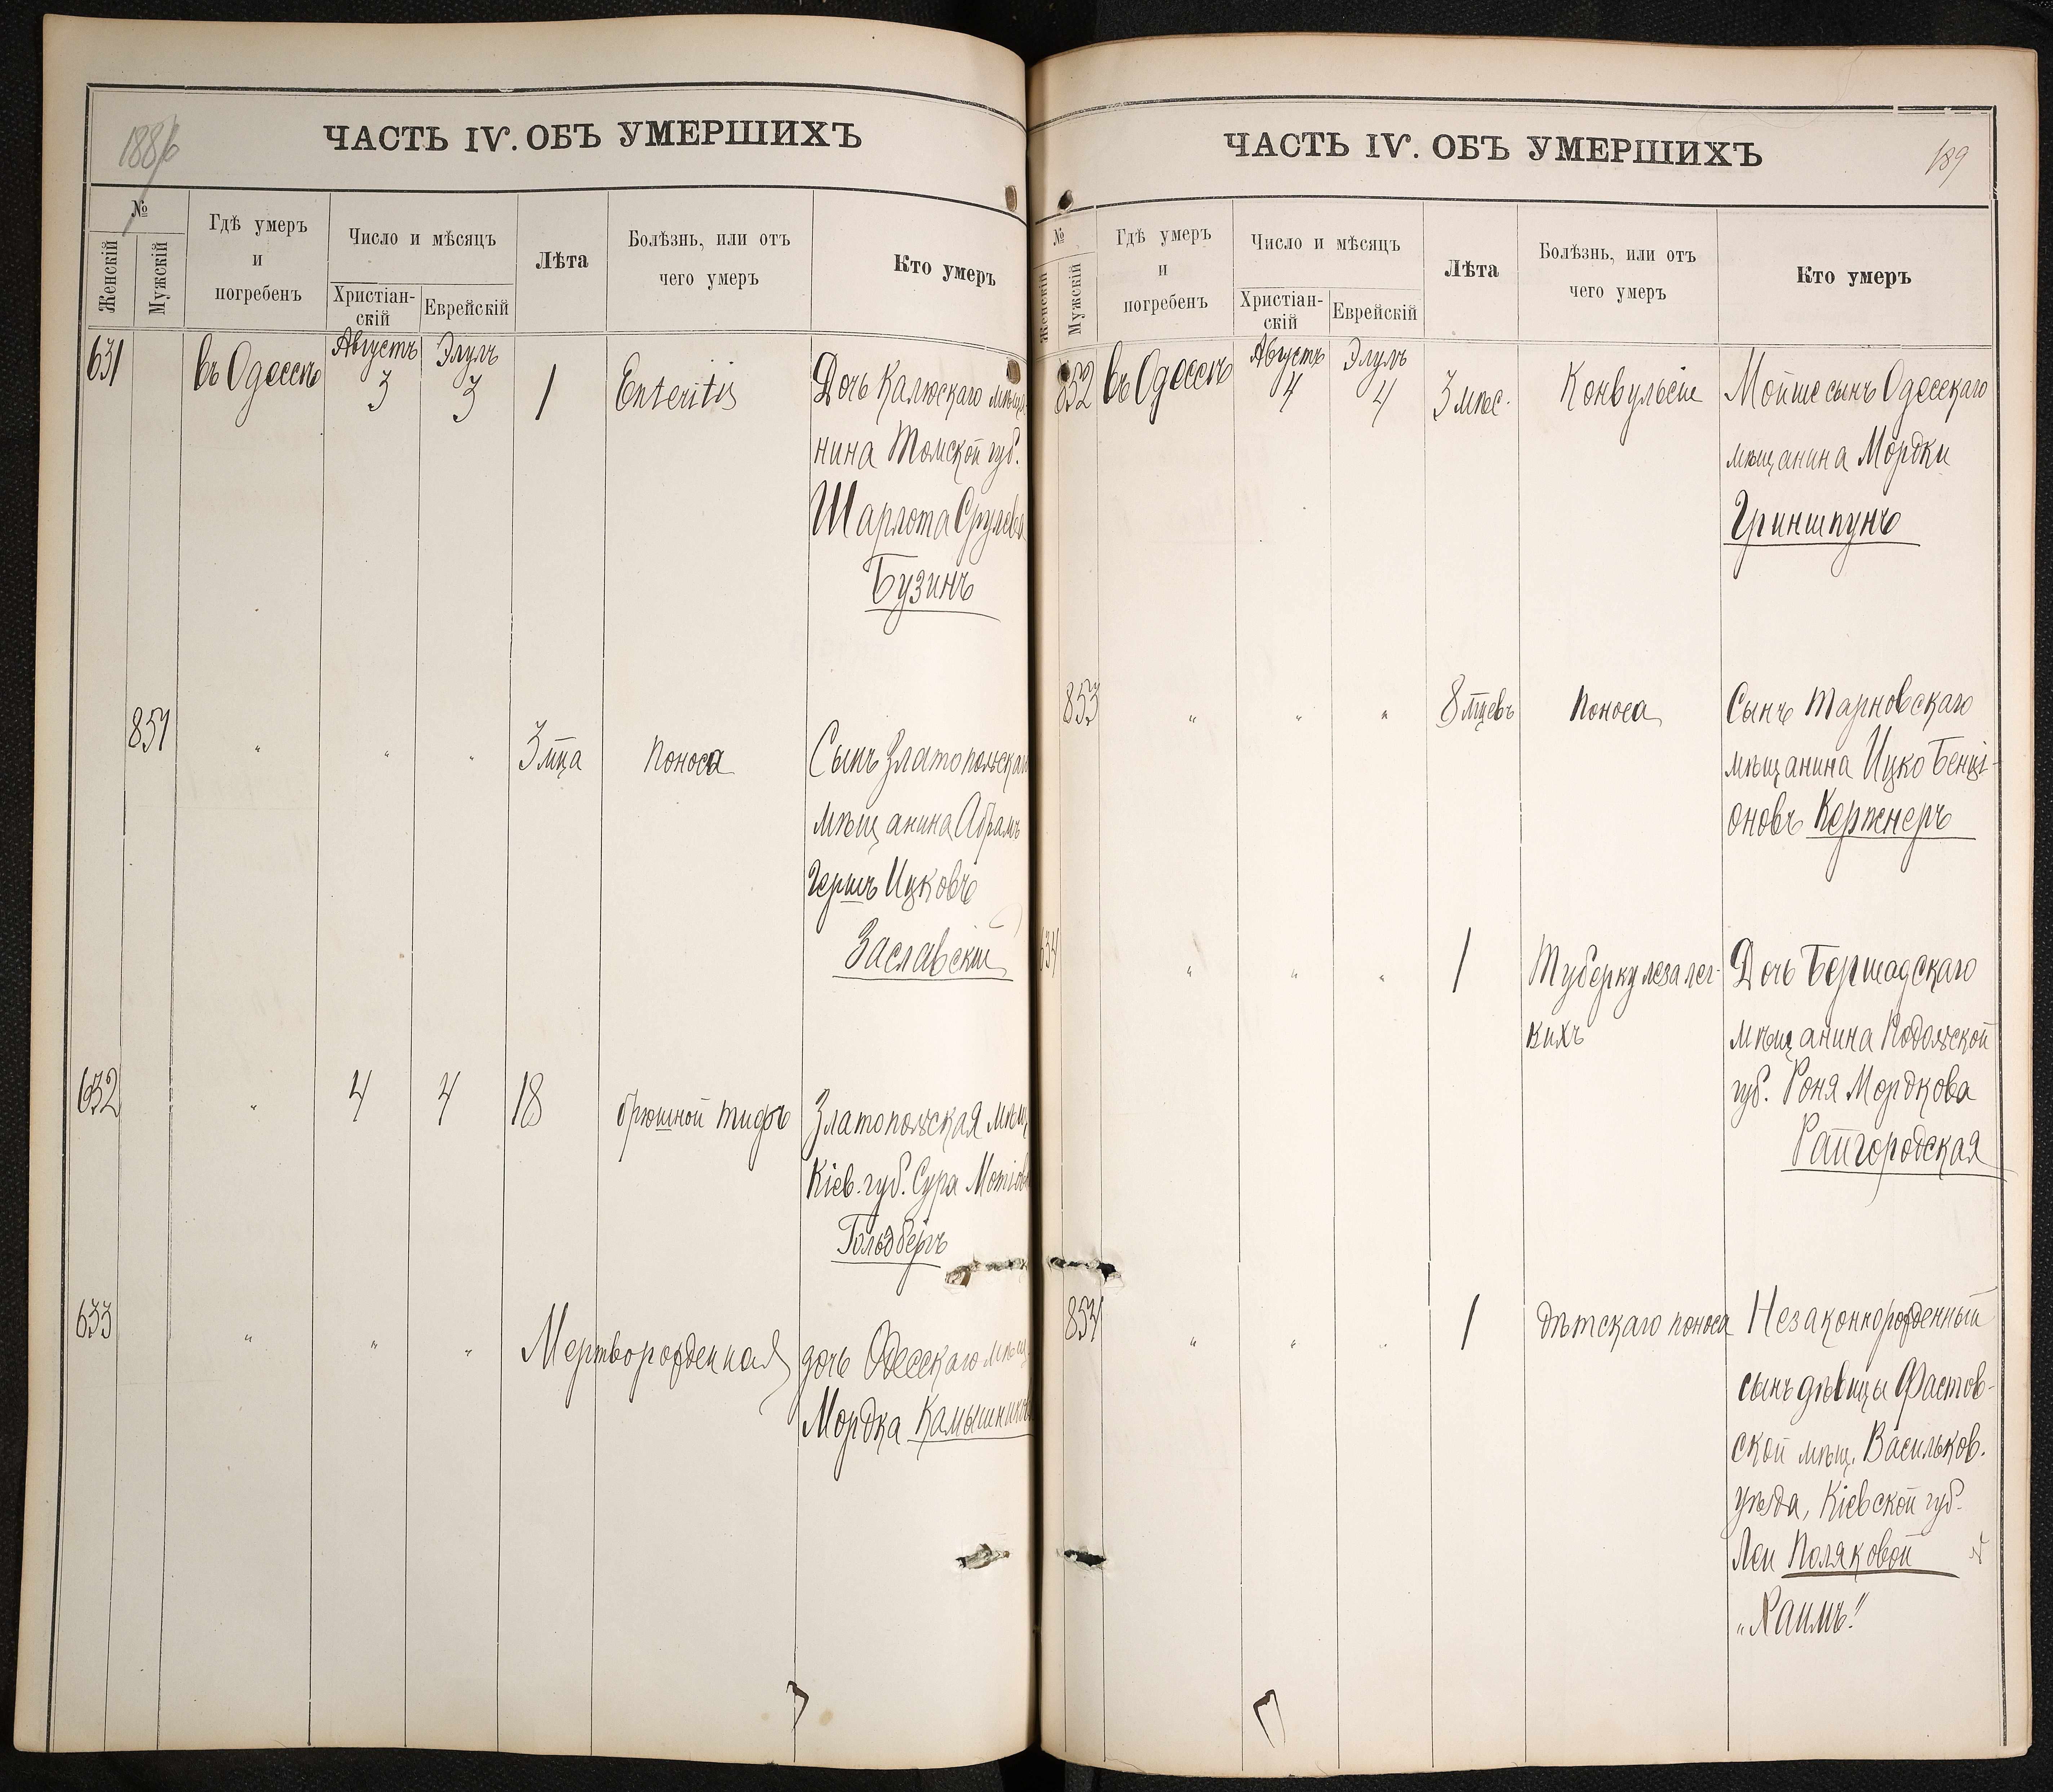 1886
ЧАСТЬ IV. ОБЪ УМЕРШИХЪ
№
Женскій
Мужскій
Гдѣ умеръ
и
погребенъ
Число и мѣсяцъ
Христіан-
скій
Еврейскій
Лѣта
Болѣзнь, или отъ
чего умеръ
Кто умеръ
631
въ Одессѣ
Августъ
3
Элулъ
3
1
Enteritis
Дочь Калюскаго мѣща
нина Томской губ.
Шарлота Срулева
Бузинъ
851
"
"
"
3 мца
поноса
Сынъ Златопольскаго
мѣщанина Абрамъ
Гершъ Ицковъ
Заславскій
632
"
4
4
18
брюшной тифъ
Златопольская мѣщ.
Кіев. губ. Сура
Гольдбергъ
633
"
"
"
Мертворожденная
дочь Одесскаго мѣщ.
Мордка
ЧАСТЬ IV. ОБЪ УМЕРШИХЪ
189
№
Женскій
Мужскій
Гдѣ умеръ
и
погребенъ
Число и мѣсяцъ
Христіан-
скій
Еврейскій
Лѣта
Болѣзнь, или отъ
чего умеръ
Кто умеръ
852
въ Одессѣ
Августъ
4
Элулъ
4
3 мѣс.
Конвульсіи
Мойше сынъ Одесскаго
мѣщанина Мордки
Гриншпунъ
853
"
"
"
8 мцевъ
поноса
Сынъ Тарновскаго
мѣщанина Ицко Бенці-
оновъ Кержнеръ
634
"
"
"
1
Туберкулеза лег-
кихъ
Дочь Бершадскаго
мѣщанина Подольской
губ. Роня Мордкова
Райгородская
854
"
"
"
1
дѣтскаго поноса
Незаконнорожденный
сынъ дѣвицы Фастов-
ской мѣщ. Васильков.
уѣзда, Кіевской губ.
Леи Поляковой
"Хаимъ"